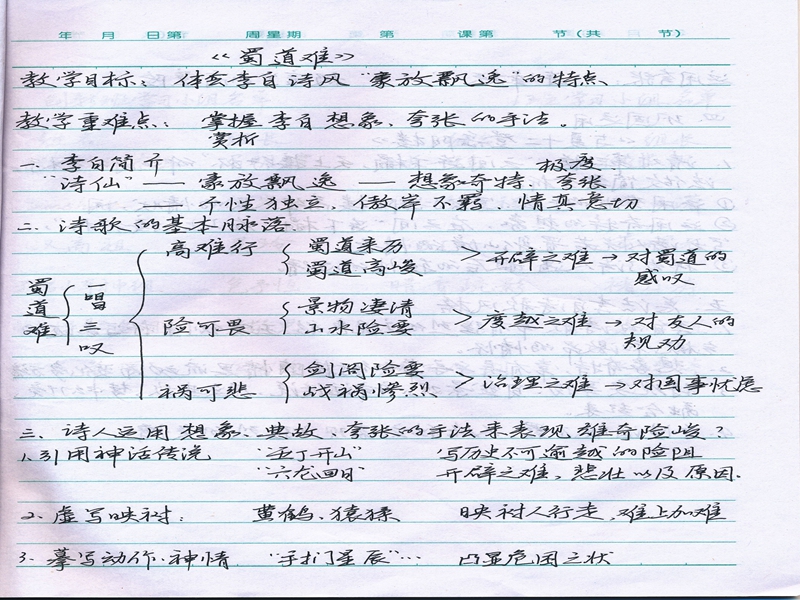 年 月 日第 周星期 第 课第 节(共 节)
《蜀道难》
教学目标：体会李白诗风"豪放飘逸"的特点
教学重难点：掌握李白想象、夸张的手法。
赏析
一、李白简介
"诗仙"——豪放飘逸——想象奇特、极度夸张
——个性独立，傲岸不羁，情真意切
二、诗歌的基本脉络
蜀道难 { 一唱三叹
高难行 { 蜀道来历 蜀道高峻 > 开辟之难 → 对蜀道的感叹
险可畏 { 景物凄清 山水险要 > 度越之难 → 对友人的规劝
祸可悲 { 剑阁险要 战祸惨烈 > 治理之难 → 对国事忧虑
三、诗人运用想象、典故、夸张的手法来表现雄奇险峻？
1、引用神话传说 "五丁开山" 写历史不可逾越的险阻
"六龙回日" 开辟之难，悲壮以及原因.
2、虚写映衬： 黄鹤、猿猱 映衬人行走，难上加难
3、摹写动作、神情 "手扪星辰"… 凸显危困之状